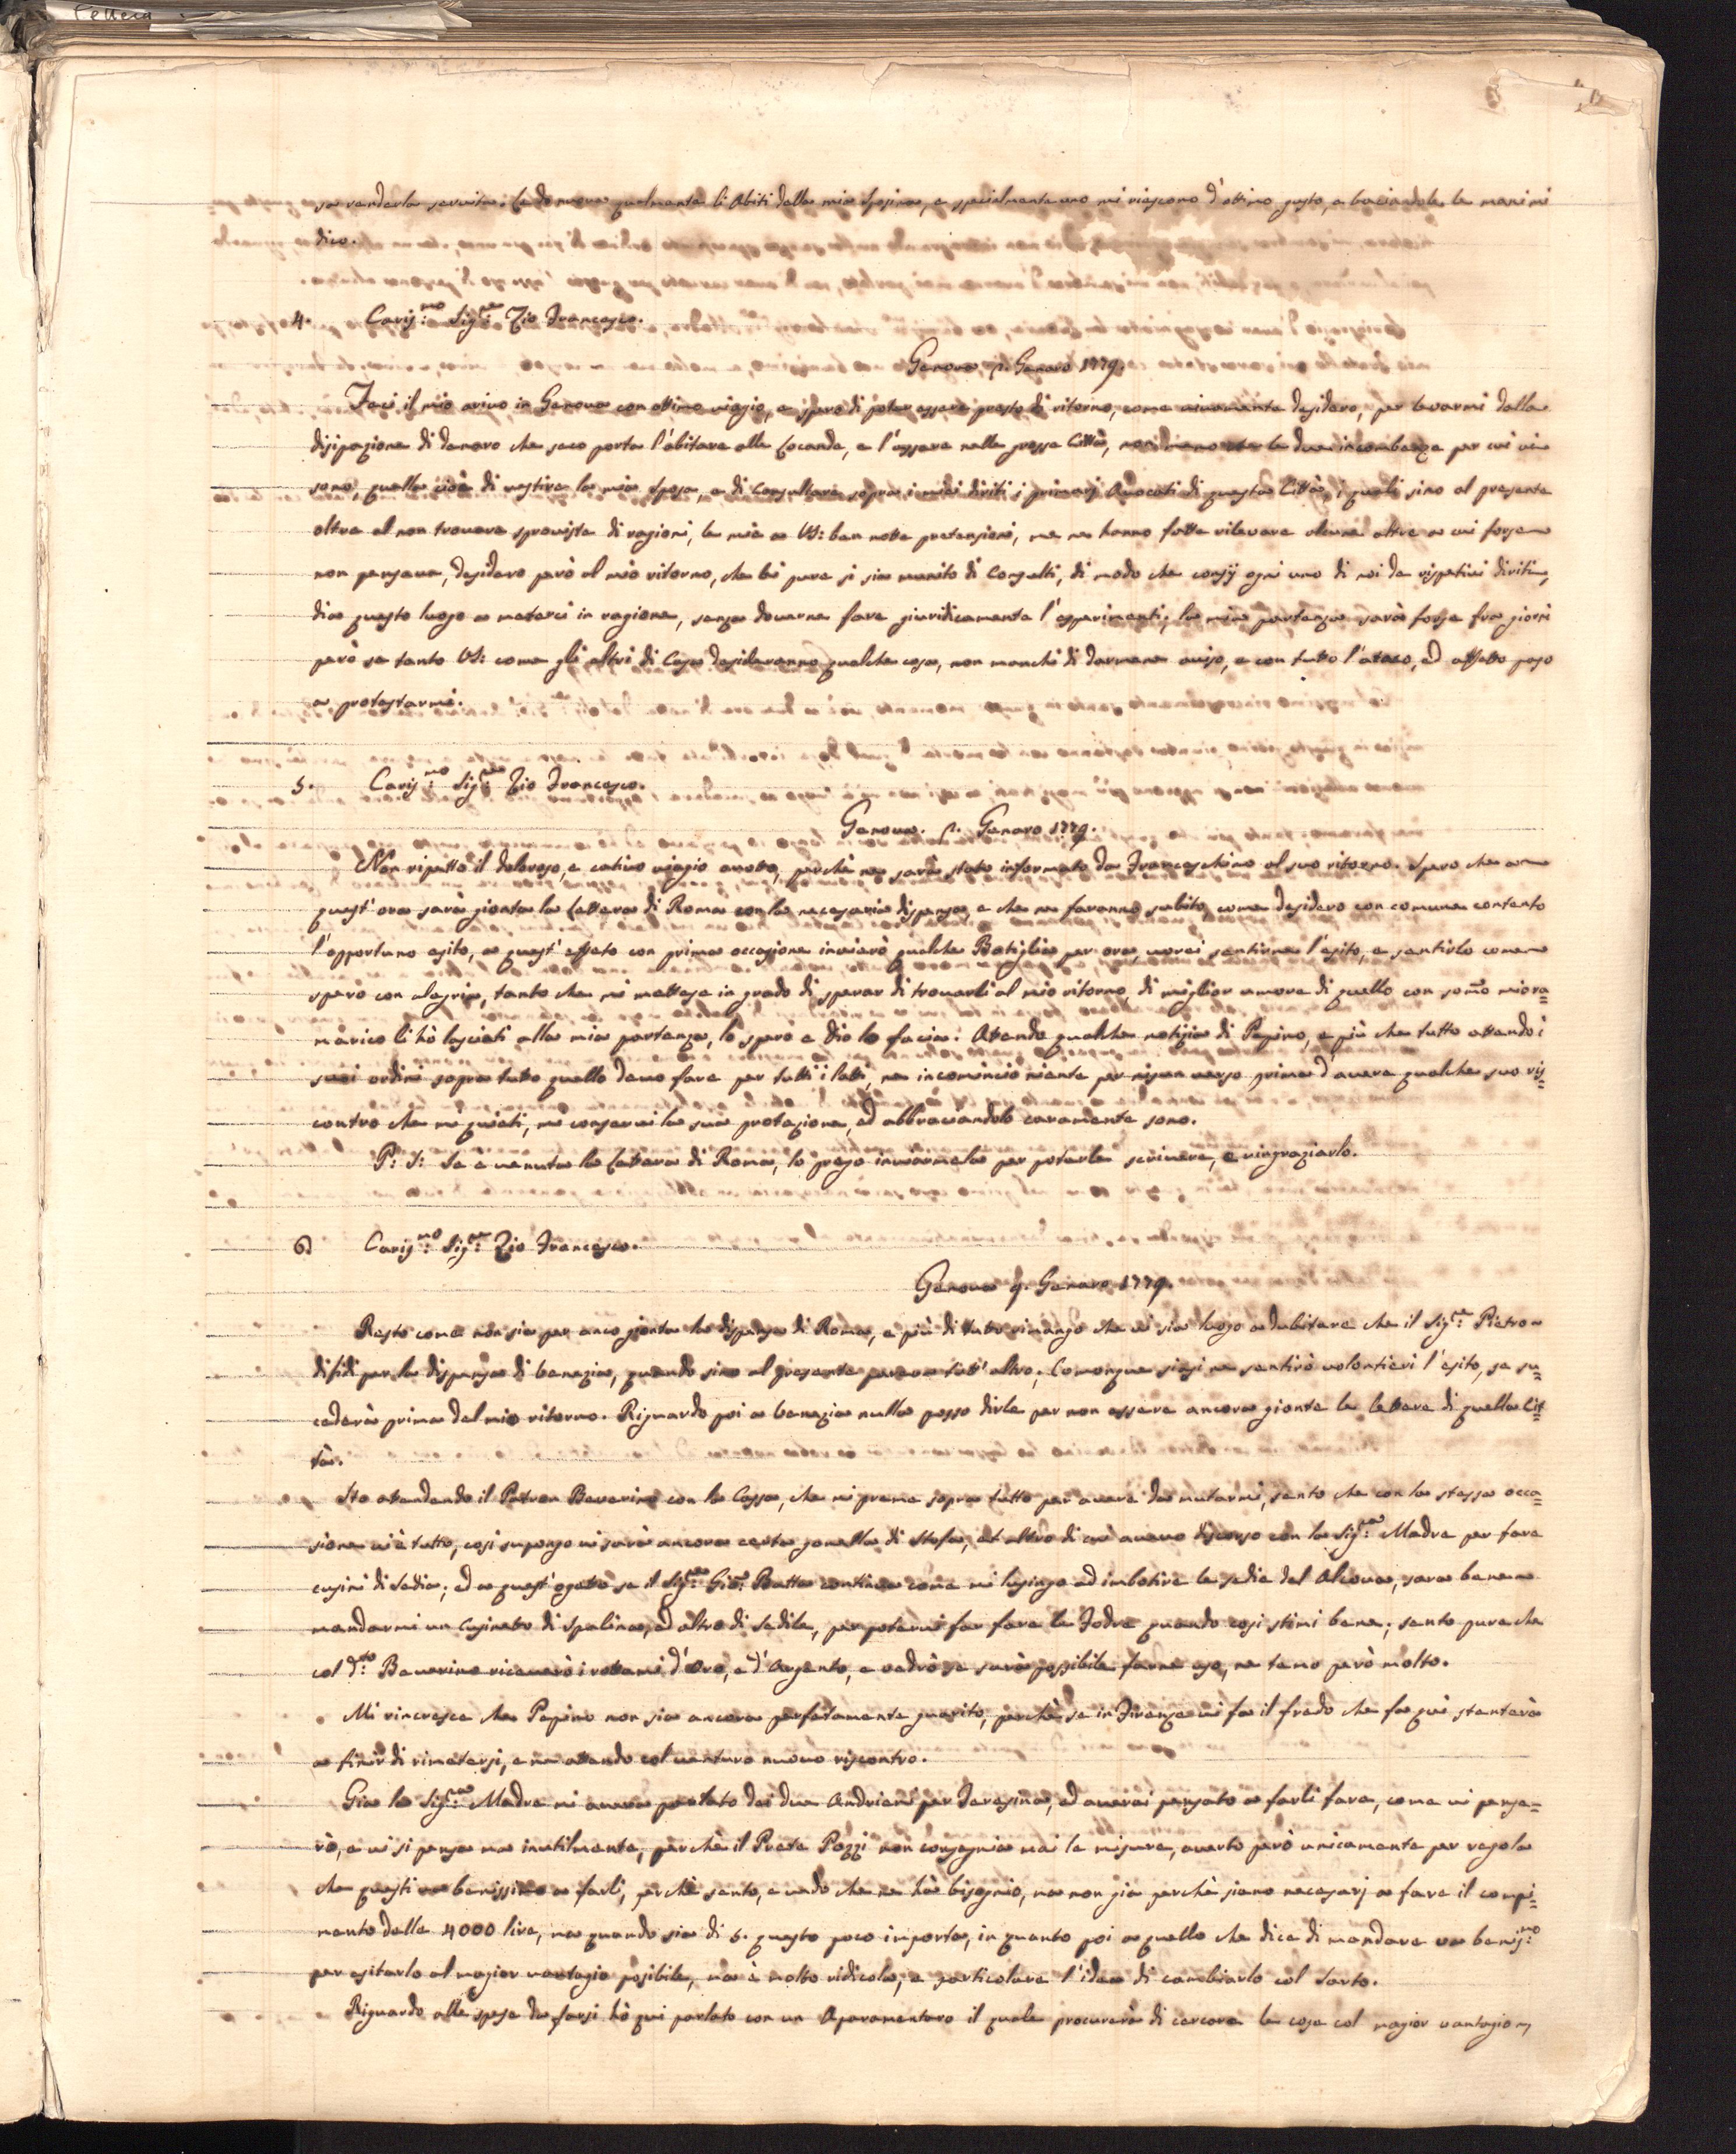 Lettera
sa renderla servita. Le do nuova qualmente li Abiti della mia Sposina, e specialmente uno mi riescono d'ottimo gusto, e baciandole le mani mi
dico.
4. Cariss:mo Sig:re Zio Francesco.
Genova p. Genaro 1779.
Feci il mio arivo in Genova con ottimo viagio, e spero di poter essere presto di ritorno, come vivamente desidero, per levarmi dalla
disipazione di denaro che seco porta l'abitare alle Locande, e l'essere nelle grosse Città, le due incombenze per cui vi
sono, quella cioè di vestire la mia Sposa, e di Consultare sopra i miei diriti i primarj Avocati di questa Città, i quali sino al presente
oltre al non trovare sproviste di ragioni, le mie a VS: ben notte pretensioni, me ne hanno fatte rilevare alcune altre a cui forse
non pensava, desidero però al mio ritorno, che lei pure si sia munito di Consulti, di modo che consij ogni uno di noi de rispetivi diriti,
dia questo luogo a meterci in ragione, senza doverne fare giuridicamente l'esperimenti; la mia partenza sarà forse fra giorni
però se tanto VS: come gli altri di Casa desideranno qualche cosa, non manchi di darmene aviso, e con tutto l'ataco, ed affetto paso
a protestarmi.
5. Cariss:mo Sig:re Zio Francesco.
Genova. p. Genaro 1779.
Non ripetto il doloroso, e cativo viagio avutto, perchè ne sarà stato informato da Franceschino al suo ritorno. Spero che a
quest'ora sarà gionta la Lettera di Roma con la necesaria dispensa, e che ne faranno subito, come desidero con comune contento
l'opportuno esito, a quest'effeto con prima occasione invierò qualche Botiglia per ora, vorei sentirne l'esito, e sentirlo come
spero con alegria, tanto che mi mettese in grado di sperar di trovarli al mio ritorno, di miglior umore di quello con somo mio ra=
marico li hò lasciati alla mia partenza, lo spero e Dio lo facia. Atendo qualche notizia di Pepino, e più che tutto attendo i
suoi ordini sopra tutto quello devo fare per tutti i lati, ne incomincio niente per nisun verso prima d'avere qualche suo ris=
contro che mi quieti, mi conservi la sua protezione, ed abbraciandolo caramente sono.
P: S: Se è venuta la Lettera di Roma, lo prego inviarmela per poterle scrivere, e ringraziarlo.
6. Cariss:mo Sig:re Zio Francesco.
Genova 9. Genaro 1779.
Resto come non sia per anco gionta la dispensa di Roma, e più di tutto rimango che vi sia luogo a dubitare che il Sig:re Pietro
difidi per la dispensa di benezia, quando sino al presente pareva tut'altro; Comonque siasi ne sentirò volontieri l'esito, se su=
cederà prima del mio ritorno. Riguardo poi a benezia nulla posso dirle per non essere ancora gionte le lettere di quella Cit=
tà.
Sto atendendo il Patron Baverino con la Cassa, che mi preme sopra tutto per avere da mutarmi, sento che con la stessa occa=
sione vi è tutto, cosi supongo vi sarà ancora certa gonella di Stofa, et altro di cui avevo discorso con la Sig:ra Madre per fare
cusini di Sedia; ed a quest'ogeto se il Sig:re Gio: Batta continua come mi lusingo ad imbotire le sedie del Alcova, sara bene
mandarmi un Cusineto di Spalina, ed altro di Sedile, per potervi far fare le Fodre quando cosi stimi bene; sento pure che
col d:to Baverino riceverò i rottami d'Oro, e d'Argento, e vedrò se sarà possibile farne uso, ne temo però molto.
Mi rincresce che Pepino non sia ancora perfetamente guarito, perchè se in Firenze vi fa il fredo che fa quì stenterà
a finir di rimetersi, e ne attendo col venturo nuovo riscontro.
Gia la Sig:ra Madre mi aveva parlato dei due Andrieni per Teresina, ed averei pensato a farli fare, come vi pense=
rò, e vi si pensa ma inutilmente, perchè il Prete Pozzi non consegnia mai le misure, averto però unicamente per regola
che questi va benissimo a farli, perchè sento, e vedo che ne hà bisognio, ma non gia perchè siano necesarj a fare il compi=
mento delle 4000 lire, ma quando sia di 6. questo poco importa, in quanto poi a quello che dice di mandare va beniss:mo
per esitarlo al magior vantagio posibile, ma è molto ridicola, e particolare l'idea di cambiarlo col Sarto.
Riguardo alle spese da farsi hò qui parlato con un Aparamentaro il quale procurerà di cercare le cose col magior vantagio